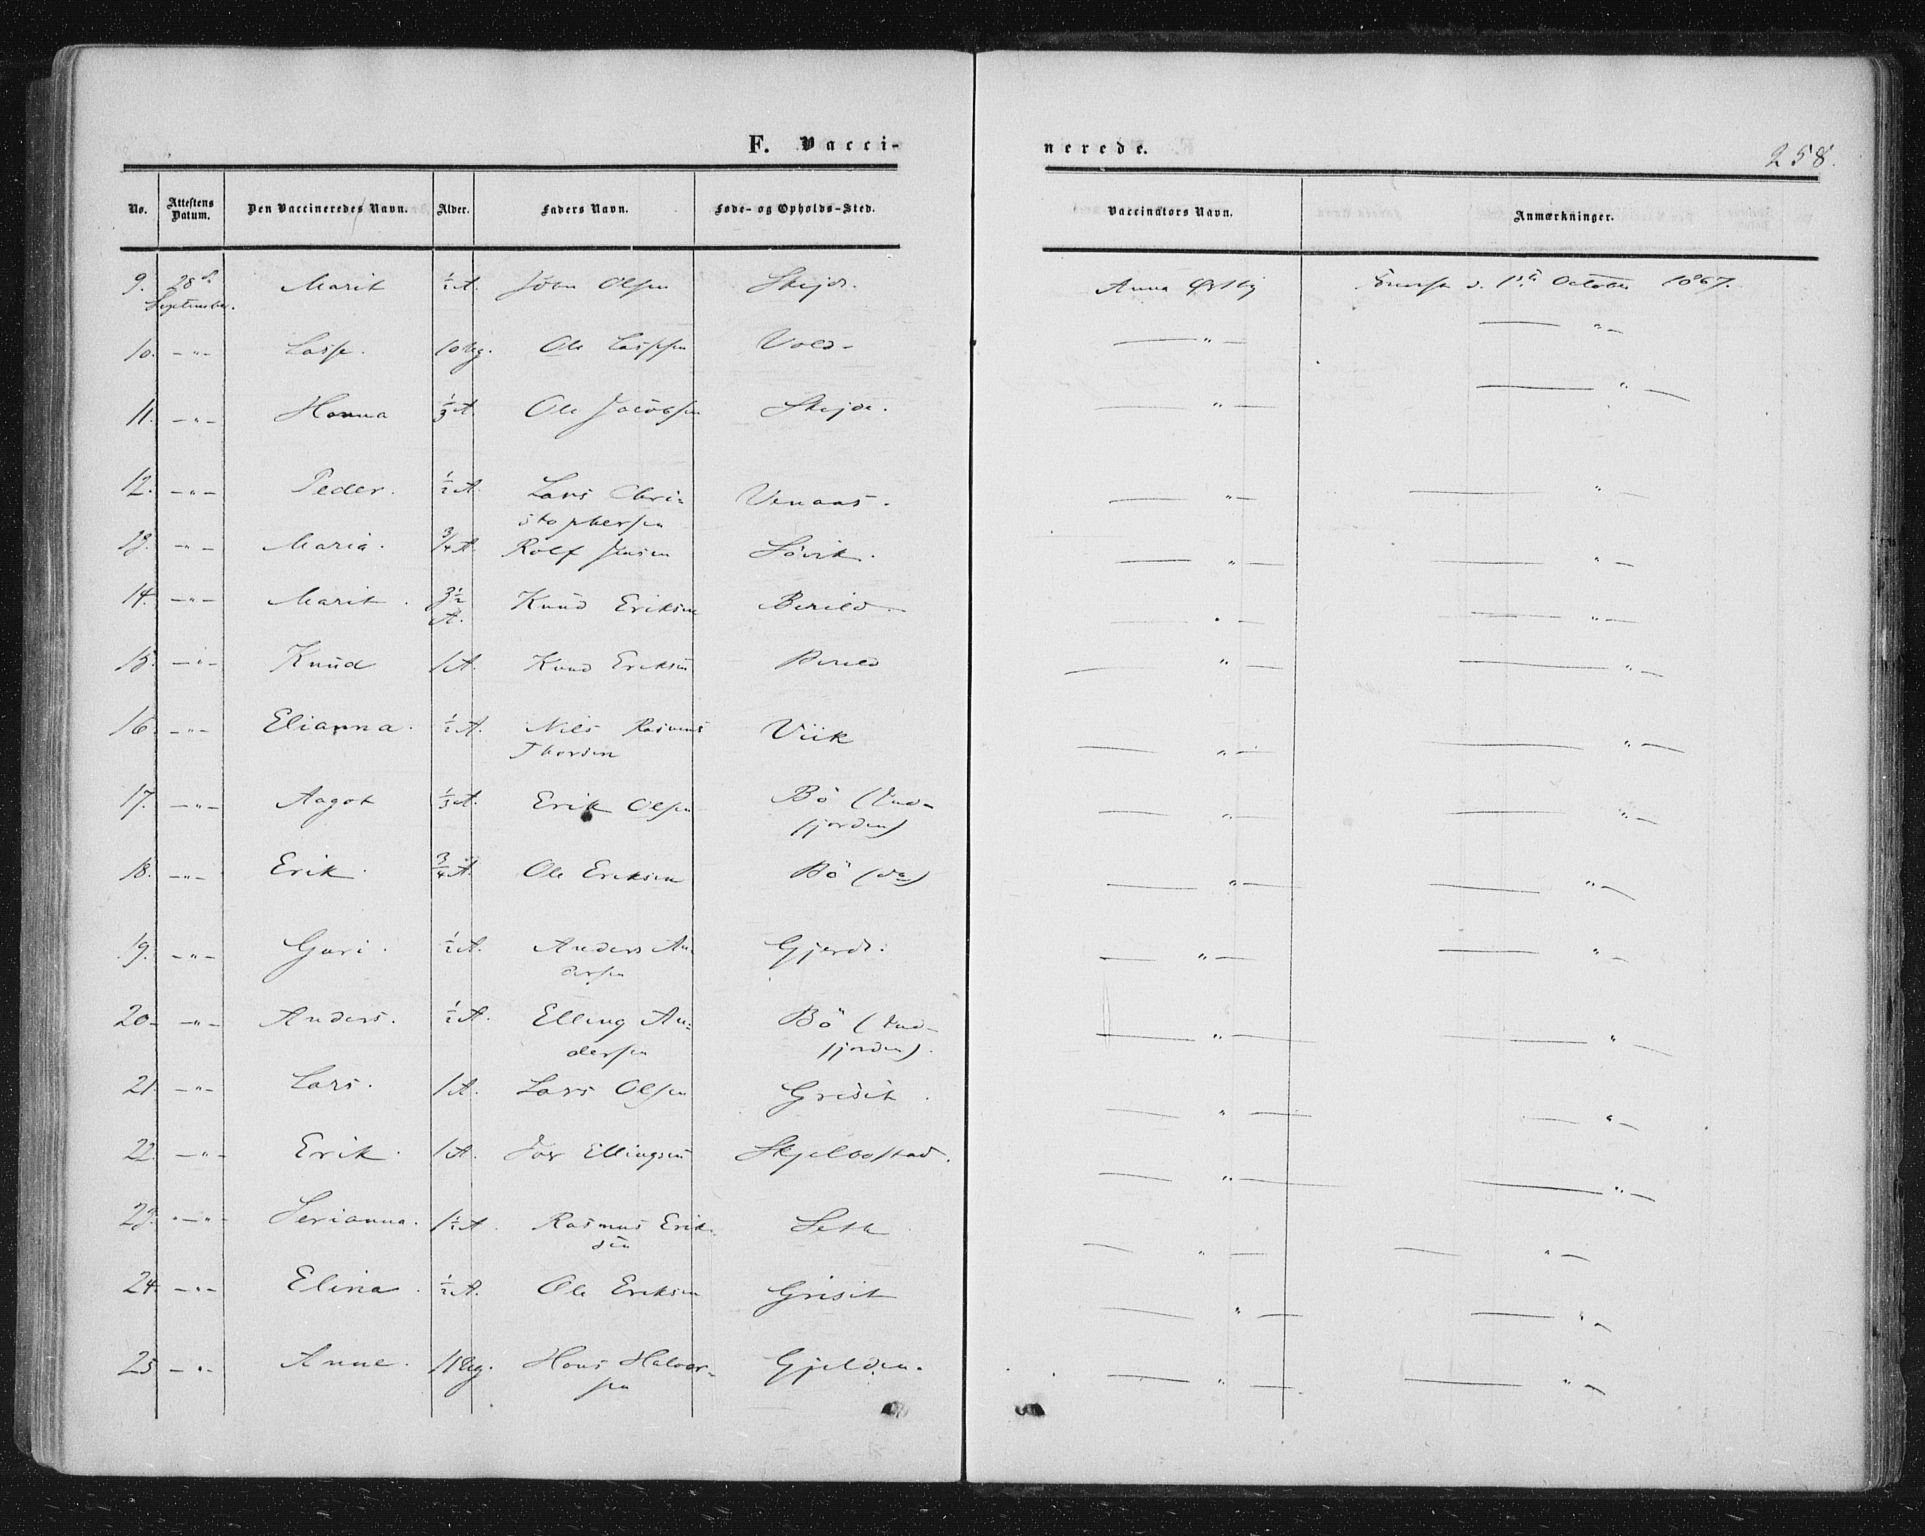 F. Vacci-
nerede.
258.
No. Attestens Datum. Den Vaccineredes Navn. Alder. Faders Navn. Føde- og Opholds-Sted. Vaccinators Navn. Anmærkninger.
9. 28de September. Marit ½ A. Jørn Olsen Skejde. Anna Østby d. 1ste October 1867.
10. -"- Lasse. 10 Ug. Ole Lassesen Vold. -"- -"-
11. -"- Hanna ⅓ A. Ole Jacobsen Skejde. -"- -"-
12. -"- Peder. ½ A. Lars Chri-
stophersen Venaas. -"- -"-
13. -"- Maria. ¾ A. Rolf Jensen Søvik. -"- -"-
14. -"- Marit. 3½ A. Knud Eriksen Berild. -"- -"-
15. -"- Knud 1 A. Knud Eriksen Berild -"- -"-
16. -"- Elianna. ½ A. Nils Rasmus
Thorsen Viik -"- -"-
17. -"- Aagot ⅓ A. Erik Olsen Bö (Ind-
fjorden) -"- -"-
18. -"- Erik. ¾ A. Ole Eriksen Bö (do) -"- -"-
19. -"- Guri. ½ A. Anders An-
dersen Gjerde. -"- -"-
20. -"- Anders. ½ A. Elling An-
dersen Bö (Ind-
fjorden). -"- -"-
21. -"- Lars. 1 A. Lars Olsen Griset. -"- -"-
22. -"- Erik. 1 A. Ellingsen Skjelbostad. -"- -"-
23. -"- Serianna. 1½ A. Rasmus Erik-
sen Seth -"- -"-
24. -"- Elina. ½ A. Ole Eriksen Griset -"- -"-
25 -"- Anne. 11 Ug. Hans Halvor-
sen Gjelden. -"- -"-